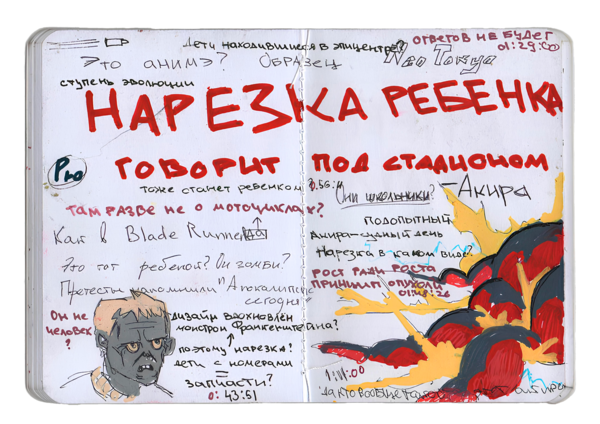 Дети находившиеся в эпицентре?
ответов не будет
01:29:00
Это анимэ? Образец
Neo Tokyo
ступень эволюции
НАРЕЗКА РЕБЕНКА
Pro
ГОВОРИТ ПОД СТАДИОНОМ
тоже станет ребенком
0.56:
Они школьники?
- Акира
там разве не о мотоциклах?
подопытный
Как в Blade Runner
Акира-судный день
Нарезка в каком виде?
Это тот ребенок? Он зомби?
рост ради роста
принцип опухоли
01:48:26
Протесты напомнили "Апокалипсис сегодня"
Он не человек?
дизайн вдохновлён
монстром Франкенштейна?
поэтому нарезка?
дети с номерами
=
запчасти?
0:43:51
1:11:00
да кто вообще такой